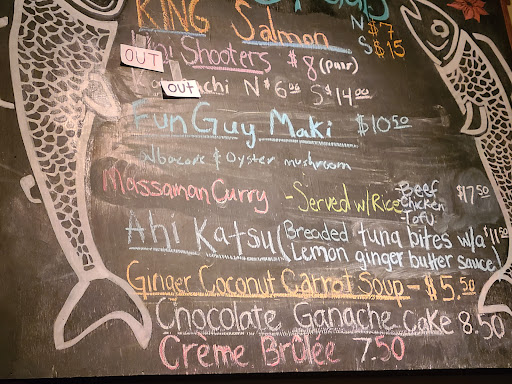 KING Salmon N $7
S $15
OUT Shooters $8 (pair)
OUT chi N $6.00 S $14.00
Fun Guy Maki $10.50
Albacore & Oyster mushroom
Massaman Curry - Served w/ Rice Beef $17.50
Chicken
Tofu
Ahi Katsu (Breaded tuna bites w/a $11.50
Lemon ginger butter sauce)
Ginger Coconut Carrot Soup - $5.50
Chocolate Ganache Cake 8.50
Crème Brûlée 7.50